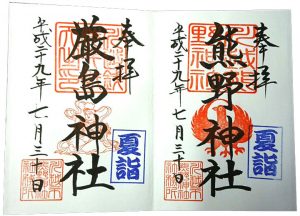 奉拝
熊野神社
夏詣
平成二十九年七月三十日
奉拝
厳島神社
夏詣
平成二十九年七月三十日